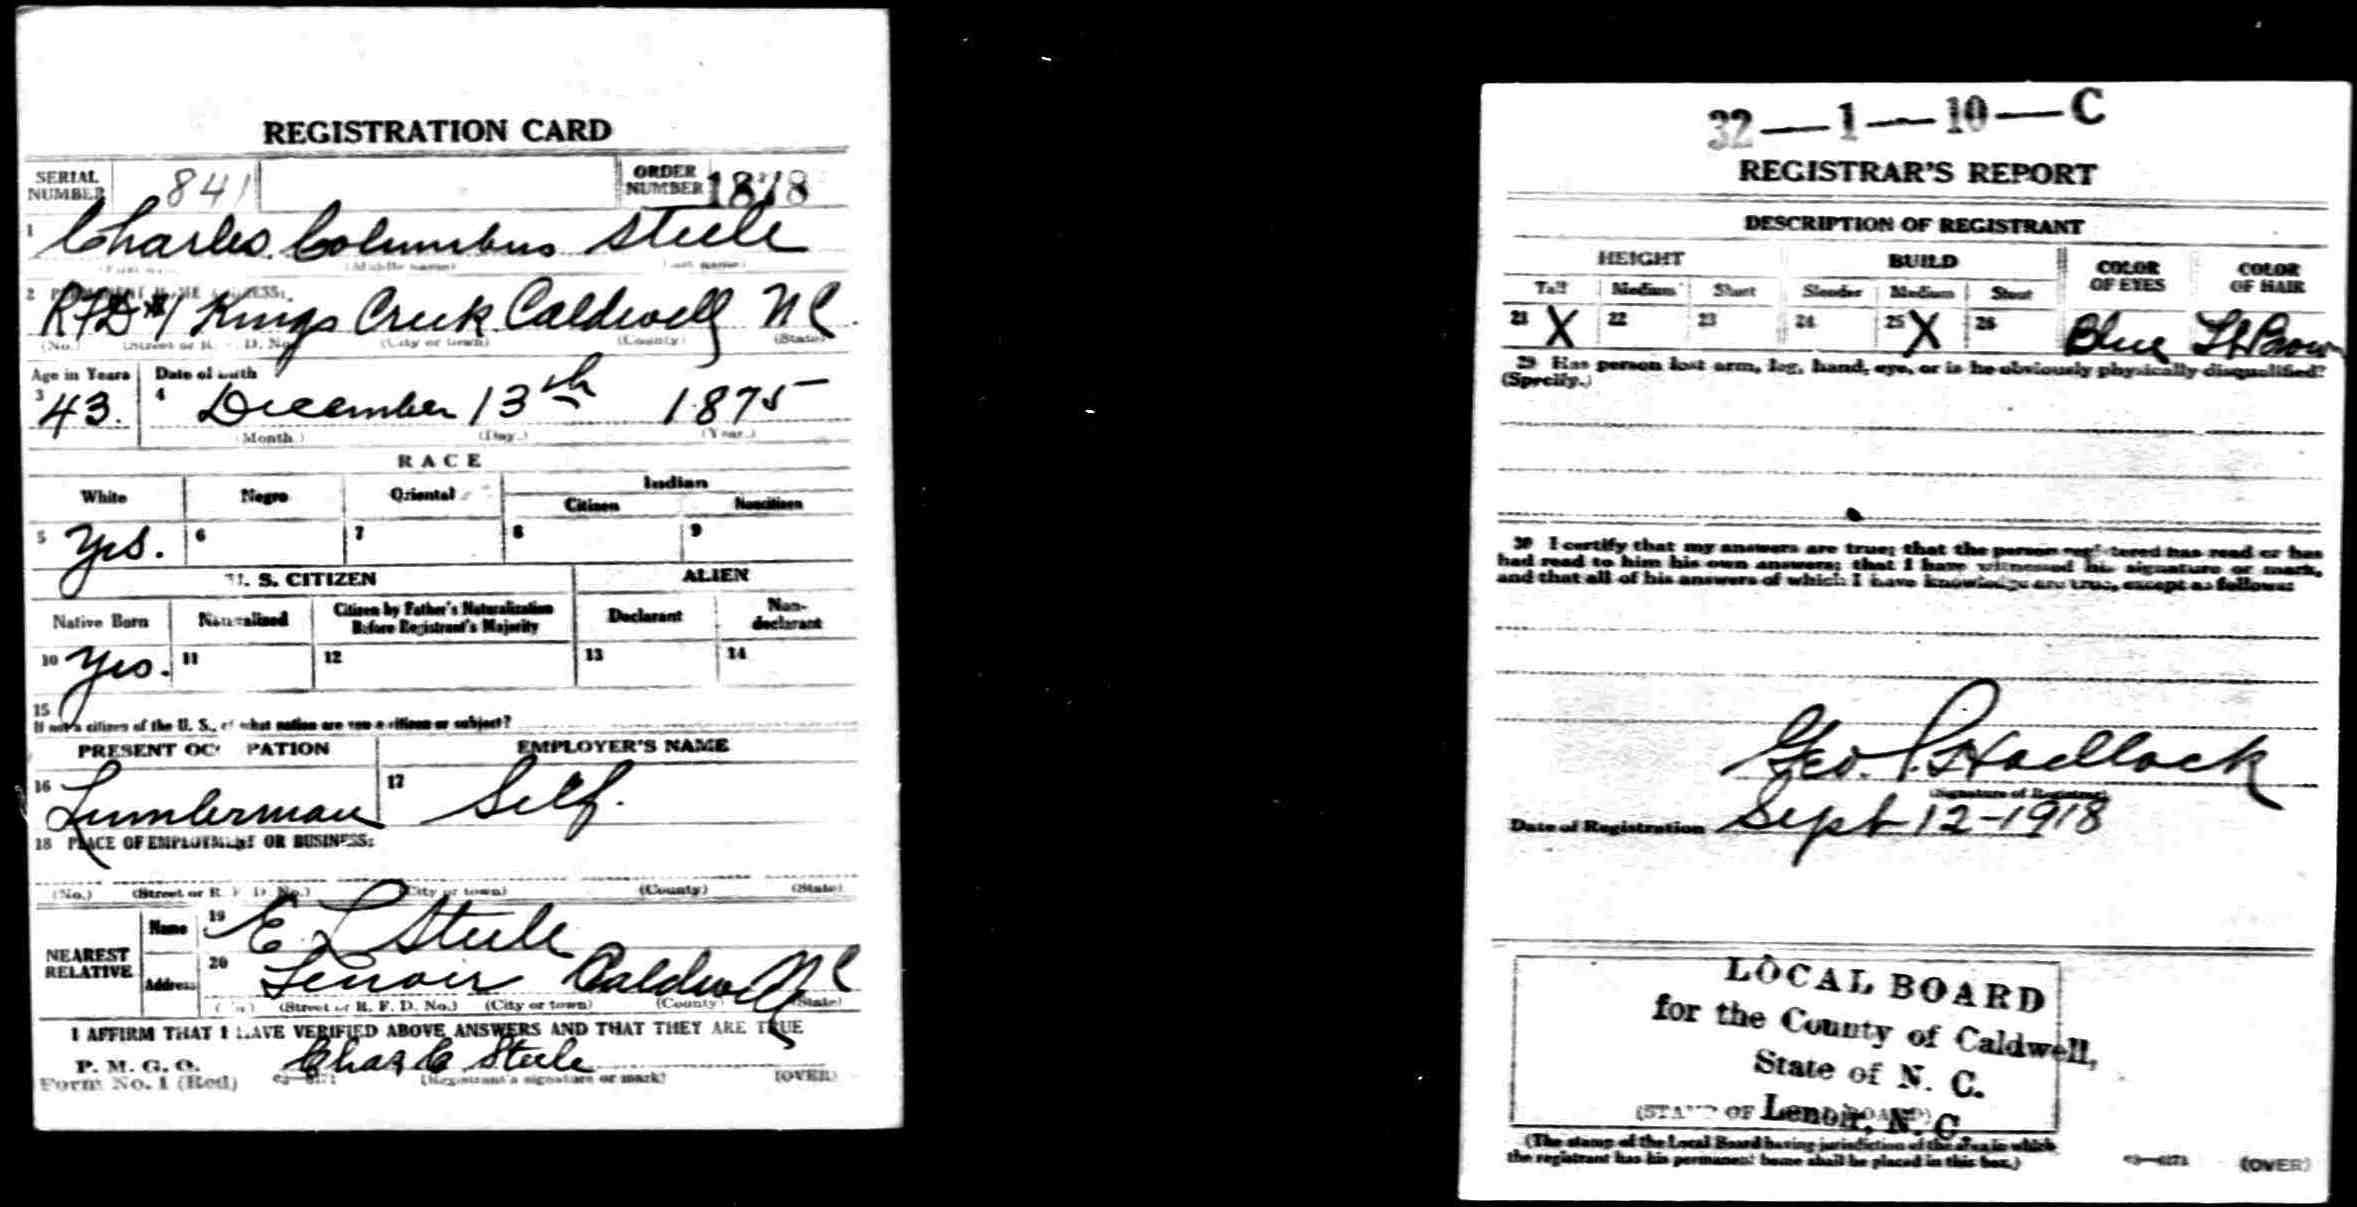 REGISTRATION CARD
SERIAL NUMBER 841 ORDER NUMBER 1878
1 Charles Columbus Steele
(Middle name) (Last name)
2 PERMANENT HOME ADDRESS:
RFD #1 Kings Creek Caldwell NC
(No.) (Street or R. F. D. No.) (City or town) (County) (State)
Age in Years Date of birth
3 43. 4 December 13th 1875
(Month.) (Day.) (Year.)
RACE
White Negro Oriental Indian
Citizen Noncitizen
5 Yes. 6 7 8 9
U. S. CITIZEN ALIEN
Native Born Naturalized Citizen by Father's Naturalization Before Registrant's Majority Declarant Non-declarant
10 Yes. 11 12 13 14
15
If not a citizen of the U. S., of what nation are you a citizen or subject?
PRESENT OCCUPATION EMPLOYER'S NAME
16 Lumberman 17 Self.
18 PLACE OF EMPLOYMENT OR BUSINESS:
(No.) (Street or R. F. D. No.) (City or town) (County) (State)
NEAREST RELATIVE Name 19 E L Steele
Address 20 Lenoir Caldwell NC
(No.) (Street or R. F. D. No.) (City or town) (County) (State)
I AFFIRM THAT I HAVE VERIFIED ABOVE ANSWERS AND THAT THEY ARE TRUE
P. M. G. O.
Form No. 1 (Red) Chas C Steele
(Registrant's signature or mark) (OVER)
32—1—10—C
REGISTRAR'S REPORT
DESCRIPTION OF REGISTRANT
HEIGHT BUILD COLOR OF EYES COLOR OF HAIR
Tall Medium Short Slender Medium Stout
21 X 22 23 24 25 X 26 Blue Lt Brown
29 Has person lost arm, leg, hand, eye, or is he obviously physically disqualified?
(Specify.)
30 I certify that my answers are true; that the person registered has read or has
had read to him his own answers; that I have witnessed his signature or mark,
and that all of his answers of which I have knowledge are true, except as follows:
Geo. Hadlock
(Signature of Registrar)
Date of Registration Sept 12-1918
LOCAL BOARD
for the County of Caldwell,
State of N. C.
Lenoir, N. C.
(STAMP OF LOCAL BOARD)
(The stamp of the Local Board having jurisdiction of the area in which
the registrant has his permanent home shall be placed in this box.)
(OVER)